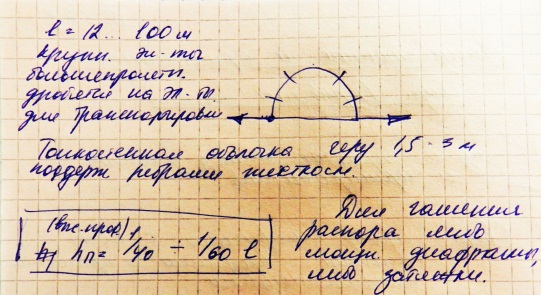 l = 12 ... 100 м
крупн. эл-ты
большепролетн.
дробятся на эл-ты
для транспортировки
Тонкостенная оболочка через 1,5-3 м
поддерж ребрами жесткости.
(выс. проф.)
hп = 1/40 ÷ 1/60 l
Для гашения
распора либо
мощн. диафрагмы,
либо затяжки.